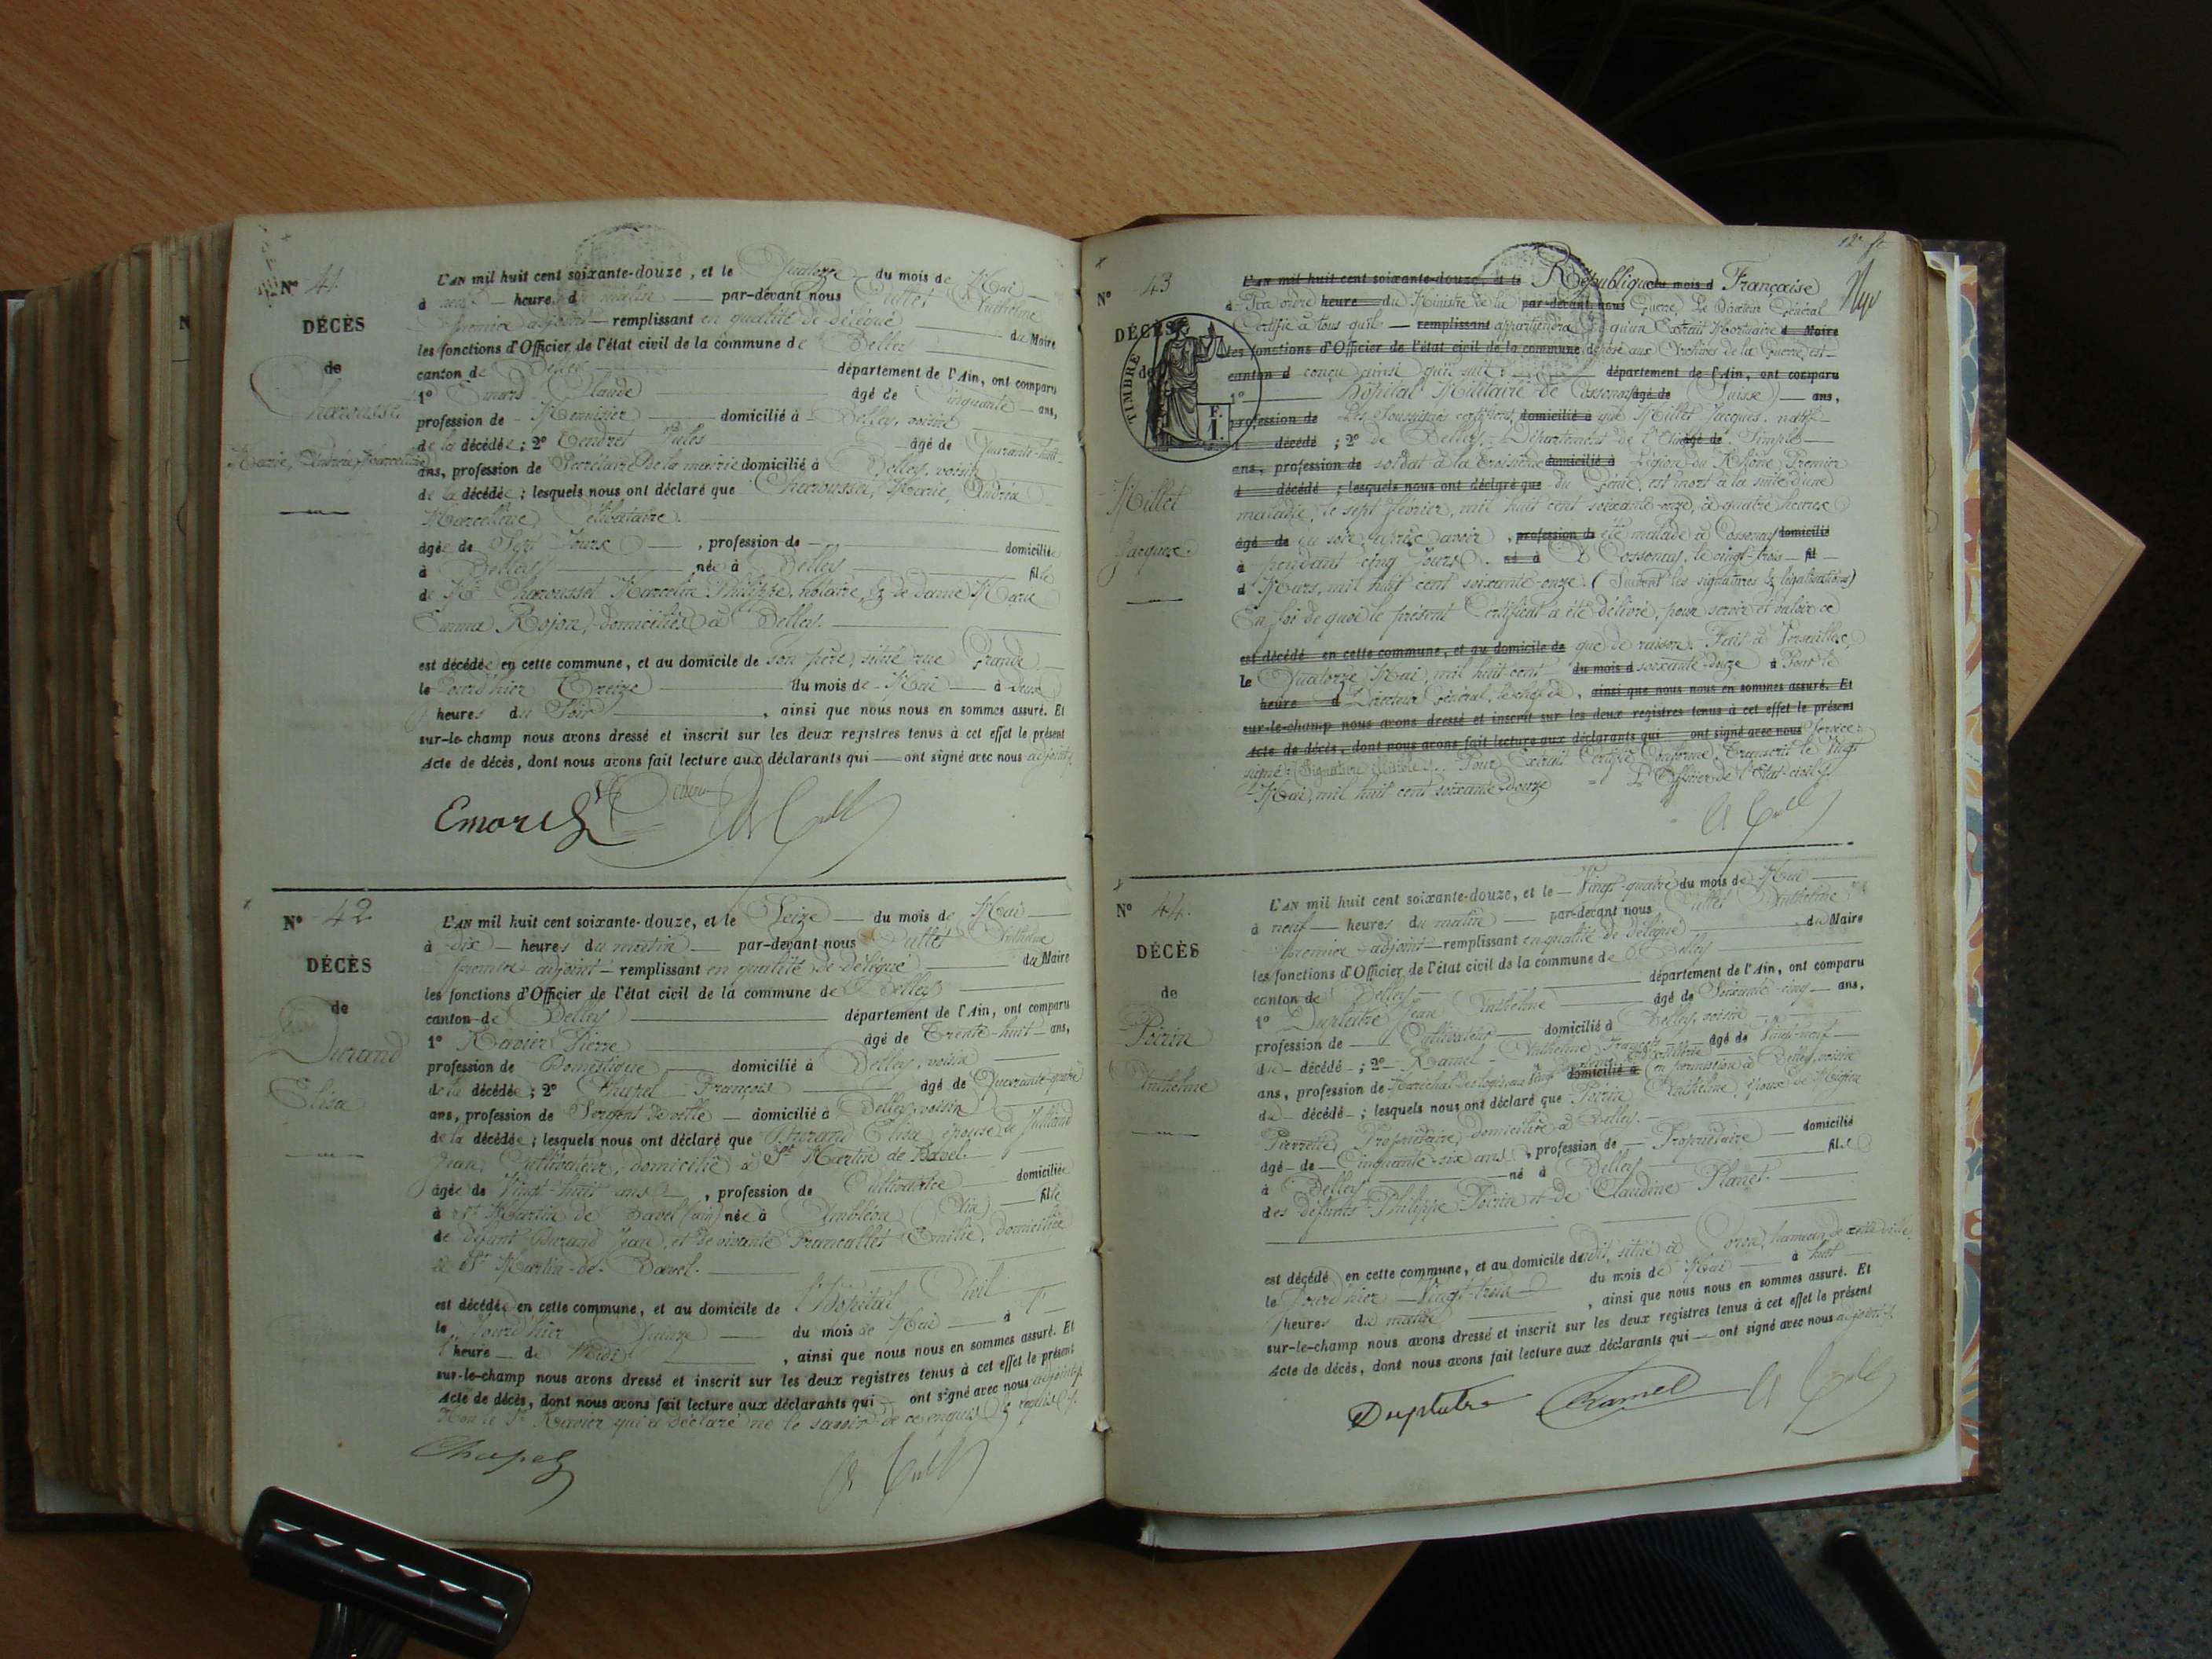 N° 41.
DÉCÈS
de
Charousset
Marie, Andréa, Marcelline
L'AN mil huit cent soixante-douze, et le Quatorze du mois de Mai
à neuf heures du matin par-devant nous Cullet Anthelme
premier adjoint remplissant en qualité de délégué du Maire
les fonctions d'Officier de l'état civil de la commune de Belley
canton de Belley département de l'Ain, ont comparu
1° Claude âgé de Cinquante ans,
profession de Menuisier domicilié à Belley, voisin
de la décédée ; 2° Tendret Jules âgé de Quarante-huit
ans, profession de Secrétaire de la mairie domicilié à Belley, voisin
de la décédée ; lesquels nous ont déclaré que Charousset, Marie, Andréa
Marcelline, Célibataire.
âgée de Sept Jours, profession de domiciliée
à Belley née à Belley fille
de Mr Charousset Marcelin Philippe, notaire, & de dame Marie
Emma Rojon, domiciliés à Belley.
est décédée en cette commune, et au domicile de son père, situé rue Grande
le Jourd'hier Treize du mois de Mai à deux
heures du Soir, ainsi que nous nous en sommes assuré. Et
sur-le-champ nous avons dressé et inscrit sur les deux registres tenus à cet effet le présent
Acte de décès, dont nous avons fait lecture aux déclarants qui ont signé avec nous adjoint
N° 42
DÉCÈS
de
Durand
Elisa
L'AN mil huit cent soixante-douze, et le Seize du mois de Mai
à dix heures du matin par-devant nous Cullet Anthelme
premier adjoint remplissant en qualité de délégué du Maire
les fonctions d'Officier de l'état civil de la commune de Belley
canton de Belley département de l'Ain, ont comparu
1° Ravier Pierre âgé de Trente-huit ans,
profession de Domestique domicilié à Belley, voisin
de la décédée ; 2° Chapel François âgé de Quarante-quatre
ans, profession de Sergent de ville domicilié à Belley, voisin
de la décédée ; lesquels nous ont déclaré que Durand Elisa, épouse de
Jean, Cultivateur, domicilié à St Martin de Bavel.
âgée de Vingt-huit ans, profession de Cultivatrice domiciliée
à St Martin de Bavel (Ain) née à Ambléon (Ain) fille
de défunt Durand Jean, et de vivante Francallet Emilie, domiciliée
à St Martin-de-Bavel.
est décédée en cette commune, et au domicile de l'Hôpital Civil
le Jourd'hier Quinze du mois de Mai à
l'heure de Midi, ainsi que nous nous en sommes assuré. Et
sur-le-champ nous avons dressé et inscrit sur les deux registres tenus à cet effet le présent
Acte de décès, dont nous avons fait lecture aux déclarants qui ont signé avec nous adjoint,
Non le Sr Ravier qui a déclaré ne le savoir de ce enquis & requis.
Chapel
N° 43
DÉCÈS
de
TIMBRE
Millet
Jacques.
L'AN mil huit cent soixante-douze, et le République du mois d Française
Par ordre heure du Ministre de la par-devant nous Guerre, Le Directeur Général
Certifie à tous qu'il remplissant appartiendra, qu'un Extrait Mortuaire d Maire
les fonctions d'Officier de l'état civil de la commune déposé aux Archives de la Guerre, est
canton d conçu ainsi qu'il suit : département de l'Ain, ont comparu
1° Hôpital Militaire de Cossonay âgé de (Suisse) ans,
profession de Les Soussignés certifient domicilié à que Millet Jacques, natif
décédé ; 2° de Belley, Département de l'Ain âgé de Simple
ans, profession de soldat à la troisième domicilié à Légion du Rhône, Premier
d décédé ; lesquels nous ont déclaré que du Génie, est mort à la suite d'une
maladie, le sept février, mil huit cent soixante-onze, à quatre heures
âgé de du soir, après avoir, profession de été malade à Cossonay domicilié
à pendant cinq Jours. né à Cossonay, le vingt-trois fil
d Mars, mil huit cent soixante-onze. (Suivent les signatures & légalisations)
En foi de quoi le présent Certificat a été délivré, pour servir et valoir ce
est décédé en cette commune, et au domicile de que de raison. Fait à Versailles,
le Quatorze Mai, mil huit cent du mois d soixante douze à Pour le
heure d Directeur Général, le chef de, ainsi que nous nous en sommes assuré. Et
sur-le-champ nous avons dressé et inscrit sur les deux registres tenus à cet effet le présent
Acte de décès, dont nous avons fait lecture aux déclarants qui ont signé avec nous Service.
signé : (Signature illisible). Pour Extrait Certifié Conforme, Transcrit le Vingt
Mai, mil huit cent soixante-douze L'Officier de l'Etat-civil
N° 44.
DÉCÈS
de
Poirin
Anthelme
L'AN mil huit cent soixante-douze, et le Vingt-quatre du mois de Mai
à neuf heures du matin par-devant nous Cullet Anthelme
premier adjoint remplissant en qualité de délégué du Maire
les fonctions d'Officier de l'état civil de la commune de Belley
canton de Belley département de l'Ain, ont comparu
1° Duplatre Jean Anthelme âgé de Soixante-cinq ans,
profession de Cultivateur domicilié à Belley, voisin
du décédé ; 2° Ramel Anthelme François âgé de Vingt-neuf
ans, profession de Maréchal des logis domicilié à (en permission à Belley, voisin
du décédé ; lesquels nous ont déclaré que Poirin Anthelme, époux de
Pierrette, Propriétaire, domicilié à Belley.
âgé de Cinquante-six ans, profession de Propriétaire domicilié
à Belley né à Belley fils
des défunts Philippe Poirin et de Claudine Planet.
est décédé en cette commune, et au domicile dudit, situé à Coron, hameau de cette ville,
le Jourd'hier Vingt-trois du mois de Mai à huit
heures du matin, ainsi que nous nous en sommes assuré. Et
sur-le-champ nous avons dressé et inscrit sur les deux registres tenus à cet effet le présent
Acte de décès, dont nous avons fait lecture aux déclarants qui ont signé avec nous adjoint.
Duplatre Ramel